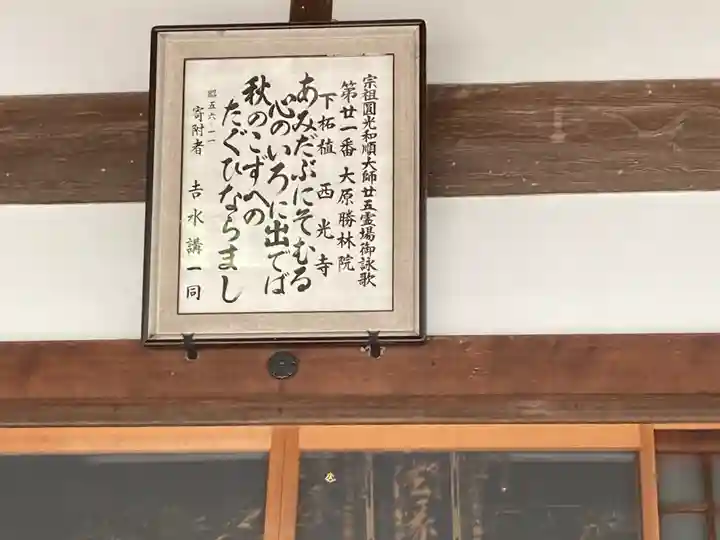 宗祖圓光和順大師廿五霊場御詠歌
第廿一番 大原勝林院
下柘植 西光寺
あみだぶにそむる
心のいろに出でば
秋のこずへの
たぐひならまし
昭五六・一一
寄附者 吉水講一同